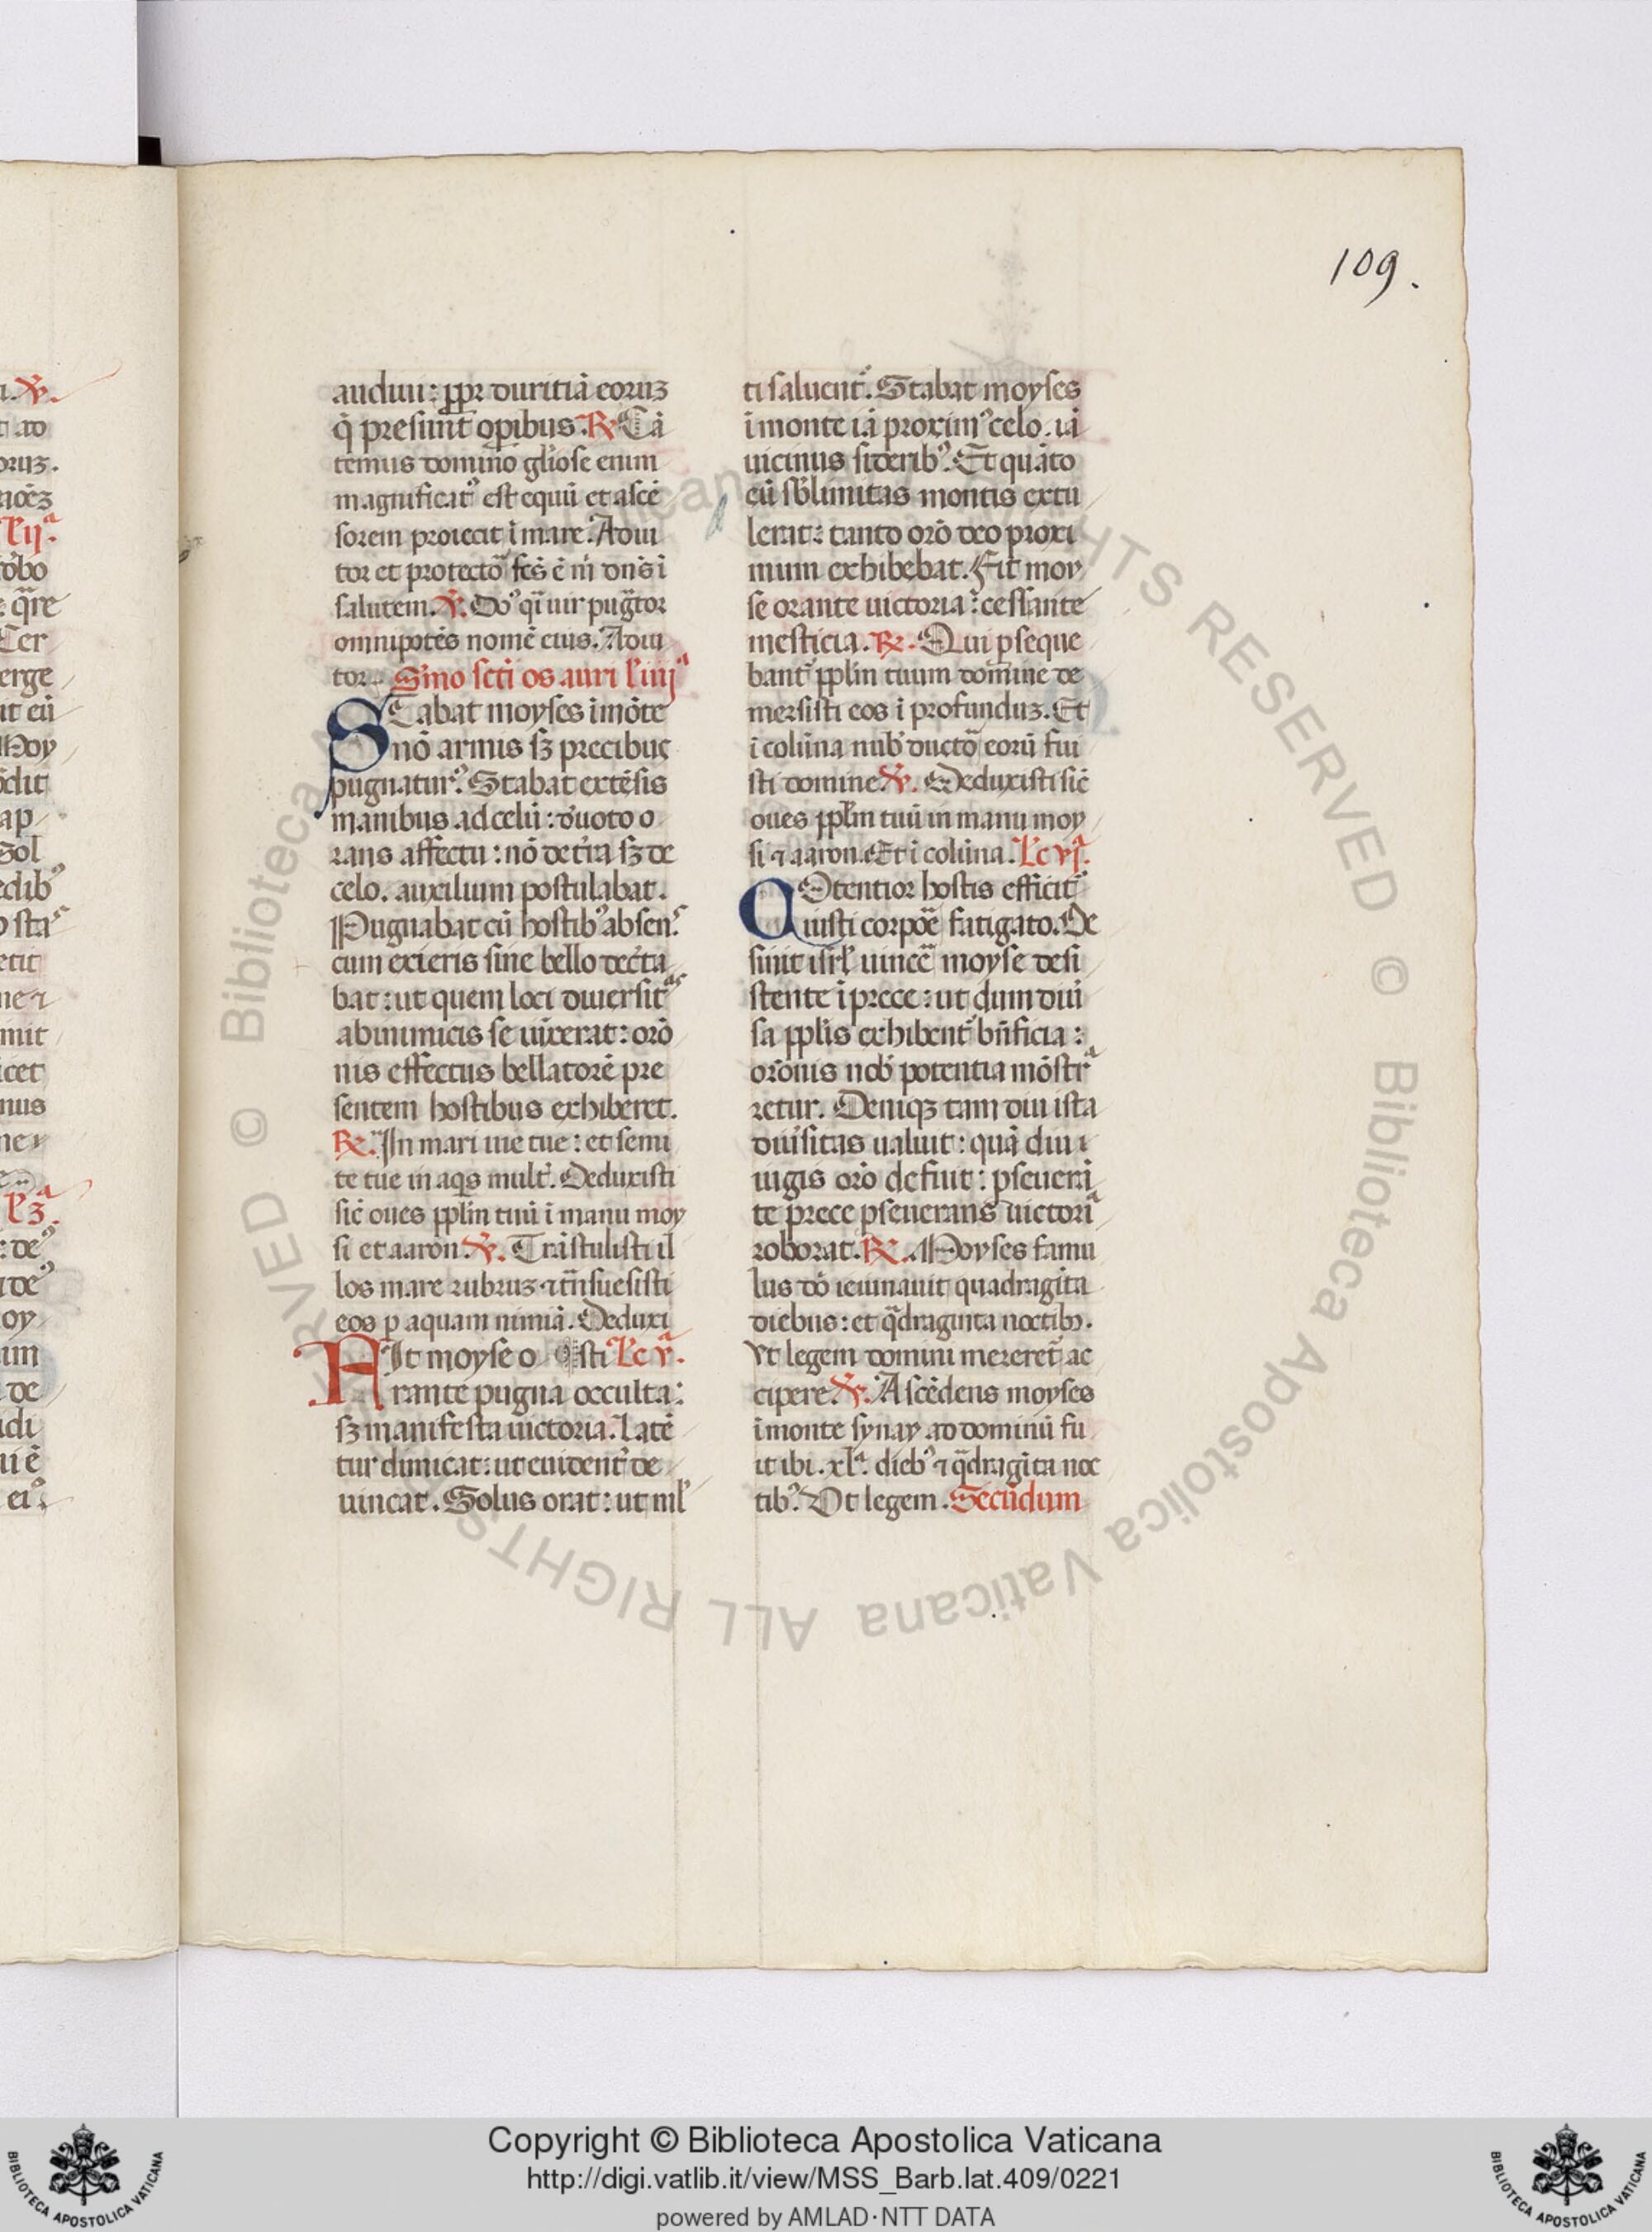 109.
audiui: ꝓpr duritiā eorūꝫ
q̇ presunt oꝑibus. ℟ Cā
temus domino gl̓iose enim
magnificat᷒ est equū et ascē
sorem proiecit ī mare. Adiu
tor et protecto᷒ fcs̄ ē m̄ dn̄s ī
salutem. ℣. Do᷒ qī uir pug̃tor
omnipotēs nomē eius. Adiu
tor. Sm̄o scti os auri l̓ iiij ͣ
STabat moyses ī mōte
nō armis sꝫ precibus
pugnatur᷒. Stabat extēsis
manibus ad celū: d̓uoto o
rans affectu: nō de tr̓ra sꝫ de
celo. auxilium postulabat.
Pugnabat cū hostib᷒ absen᷒
cum exieris sine bello dec̓ta
bat: ut quem loci diuersit ͣs
ab inimicis se uīxerat: orō
nis effectus bellatorē pre
sentem hostibus exhiberet.
℟. In mari uie tue: et semi
te tue in aqs mult̓. Deduxisti
sic̄ oues ꝓplm̄ tuū ī manu moy
si et aaron. ℣. Trāstulisti il
los mare rubruꝫ ⁊ tn̄suexisti
eos ꝑ aquam nimiā. Deduxi
FIt moyse o sti Lc v ͣ.
rante pugna occulta:
sꝫ manifesta uictoria. Latē
tur dimicat: ut euident᷒ de
uincat. Solus orat: ut ml̓
ti saluent᷒. Stabat moyses
ī monte iā proxim᷒ celo. iā
uicinus siderib᷒. Et quāto
eū sb̓limitas montis extu
lerat: tanto orō deo proxi
mum exhibebat. Fit moy
se orante uictoria: cessante
mesticia. ℟. Qui ꝑseque
bant᷒ ꝓplm̄ tuum domine de
mersisti eos ī profunduꝫ. Et
ī colūna nub̓ ducto᷒ eorū fui
sti domine ℣. Deduxisti sic̄
oues ꝓplm̄ tuū in manu moy
si ⁊ aaron. Et ī colūna. Lc vj ͣ.
POtentior hostis efficit᷒
iusti corpoē fatigato. De
sinit isrl̓ uincē moyse desi
stente ī prece: ut dum diui
sa ꝓplis exhibent᷒ bn̄ficia:
orōnis nob̓ potentia mōstr ͣ
retur. Deniqꝫ tam diu ista
diu̓sitas ualuit: quā diu i
uigis orō defuit: ꝑseuerā
te prece ꝑseuerans uictori ͣ
roborat. ℟. Moyses famu
lus dō ieiunauit quadragīta
diebus: et q̄draginta noctibꝫ.
Vt legem domini mereret᷒ ac
cipere. ℣. Ascēdens moyses
ī monte synay ad dominū fu
it ibi. xl ͣ. dieb᷒ ⁊ q̄dragīta noc
tib᷒. Vt legem. Secūdum
Copyright © Biblioteca Apostolica Vaticana
http://digi.vatlib.it/view/MSS_Barb.lat.409/0221
powered by AMLAD·NTT DATA
BIBLIOTECA APOSTOLICA VATICANA
BIBLIOTECA APOSTOLICA VATICANA
© Biblioteca Apostolica Vaticana ALL RIGHTS RESERVED © Biblioteca Apostolica Vaticana ALL RIGHTS RESERVED